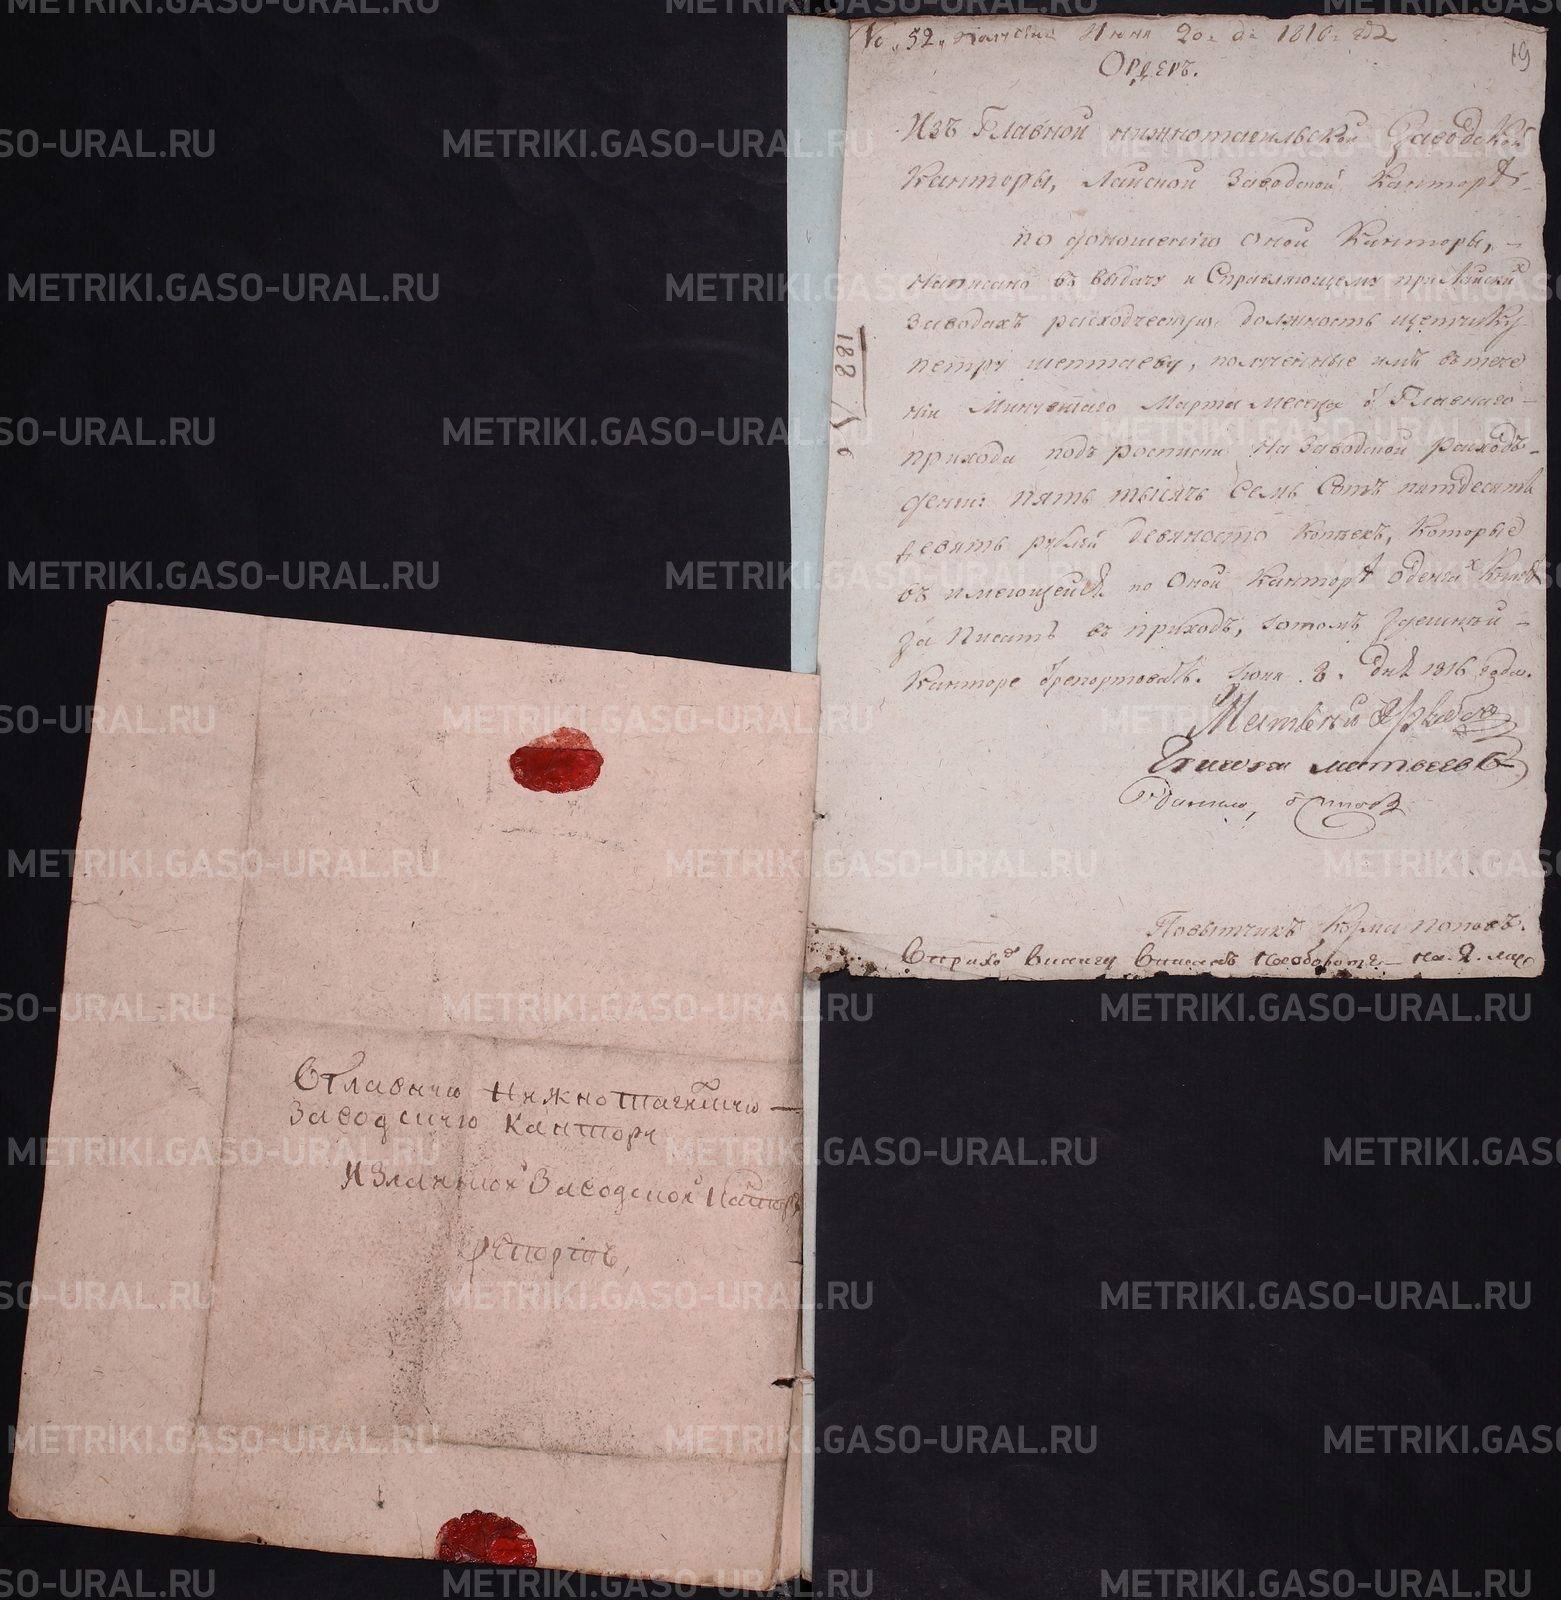 № 52. получено Июня 20 д. 1816 года
19
Ордеръ.
Изъ Главной нижнотагильской Заводской
Канторы, Лайской Заводской Канторѣ
по доношению оной Канторы,
написано въ выдачу исправляющему при Лайскихъ
заводахъ расходческую должность щетчику
петру шептаеву, полученные имъ втече
нии Минувшаго Марта месяца отъ Главнаго
прихода подъ росписки на Заводской расходъ
денги: пять тысячь семь сотъ пятдесятъ
девять рублей девяносто копѣекъ, Которые
въ имеющейся по Оной Канторѣ о денгахъ Книгѣ
за писать въ приходъ, и отомъ здешней
Канторе отрепортовать. Июня 8. дня 1816 года.
Матвей
матвеевъ
Данило
Повытчикъ Козма поповъ.
Вприход книгу вписать наоборотѣ на 2. лис
188
Главную Нижнотагилскую
Заводскую Кантору
Изланской Заводской Канторы
репортъ,
METRIKI.GASO-URAL.RU